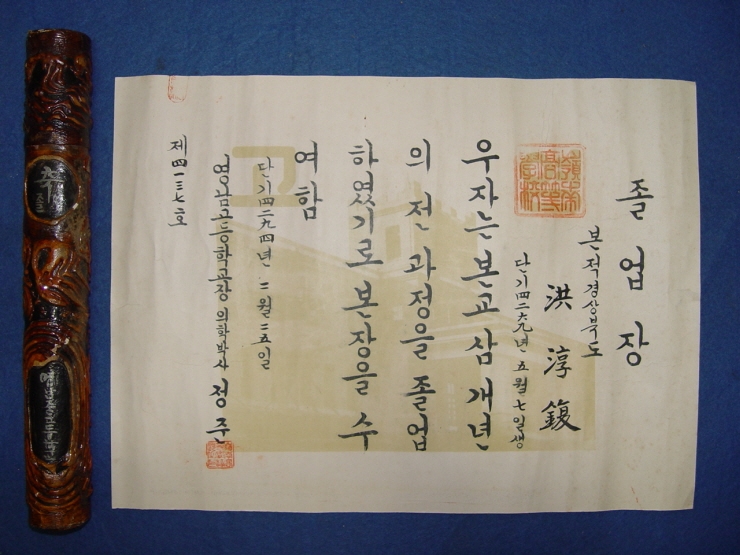 졸업장
본적경상북도
洪淳馥
단기四二六九년五월七일생
嶺南高等學校
우자는본고삼개년
의전과정을졸업
하였기로본장을수
여함
단기四二九四년二월二五일
영남고등학교장의학박사정준
제四一三七호
고